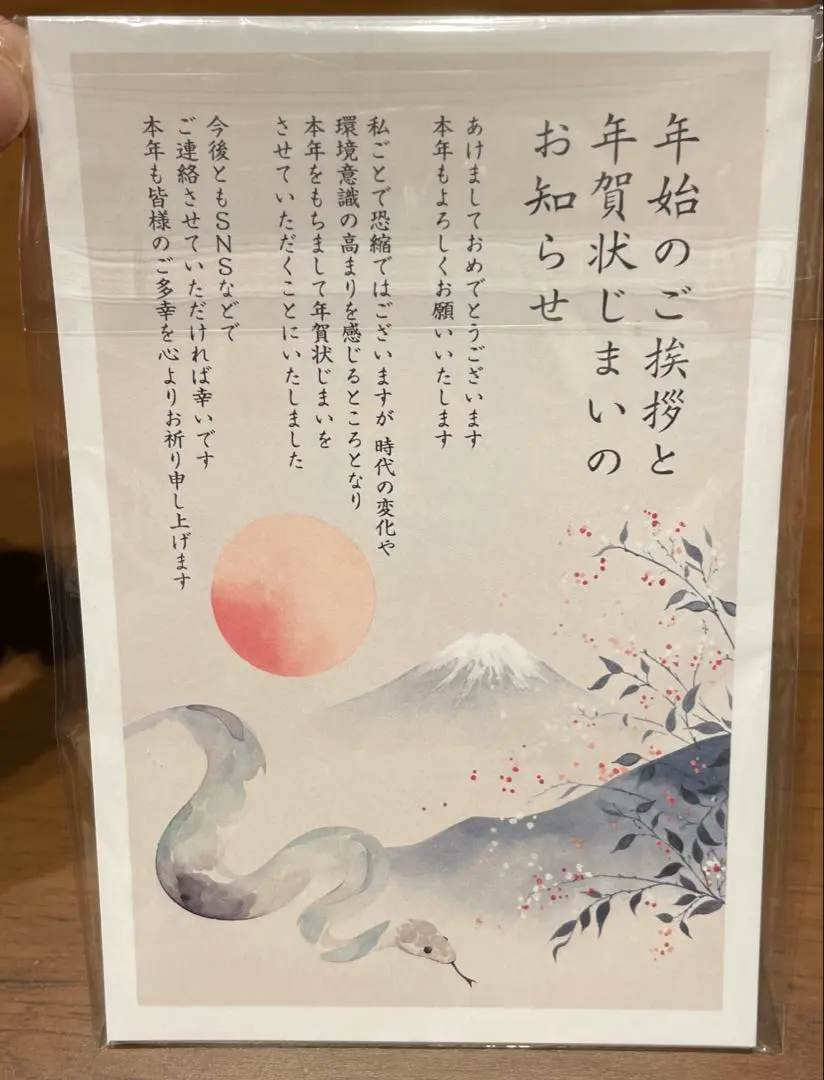 年始のご挨拶と
年賀状じまいの
お知らせ
あけましておめでとうございます
本年もよろしくお願いいたします
私ごとで恐縮ではございますが 時代の変化や
環境意識の高まりを感じるところとなり
本年をもちまして年賀状じまいを
させていただくことにいたしました
今後ともSNSなどで
ご連絡させていただければ幸いです
本年も皆様のご多幸を心よりお祈り申し上げます